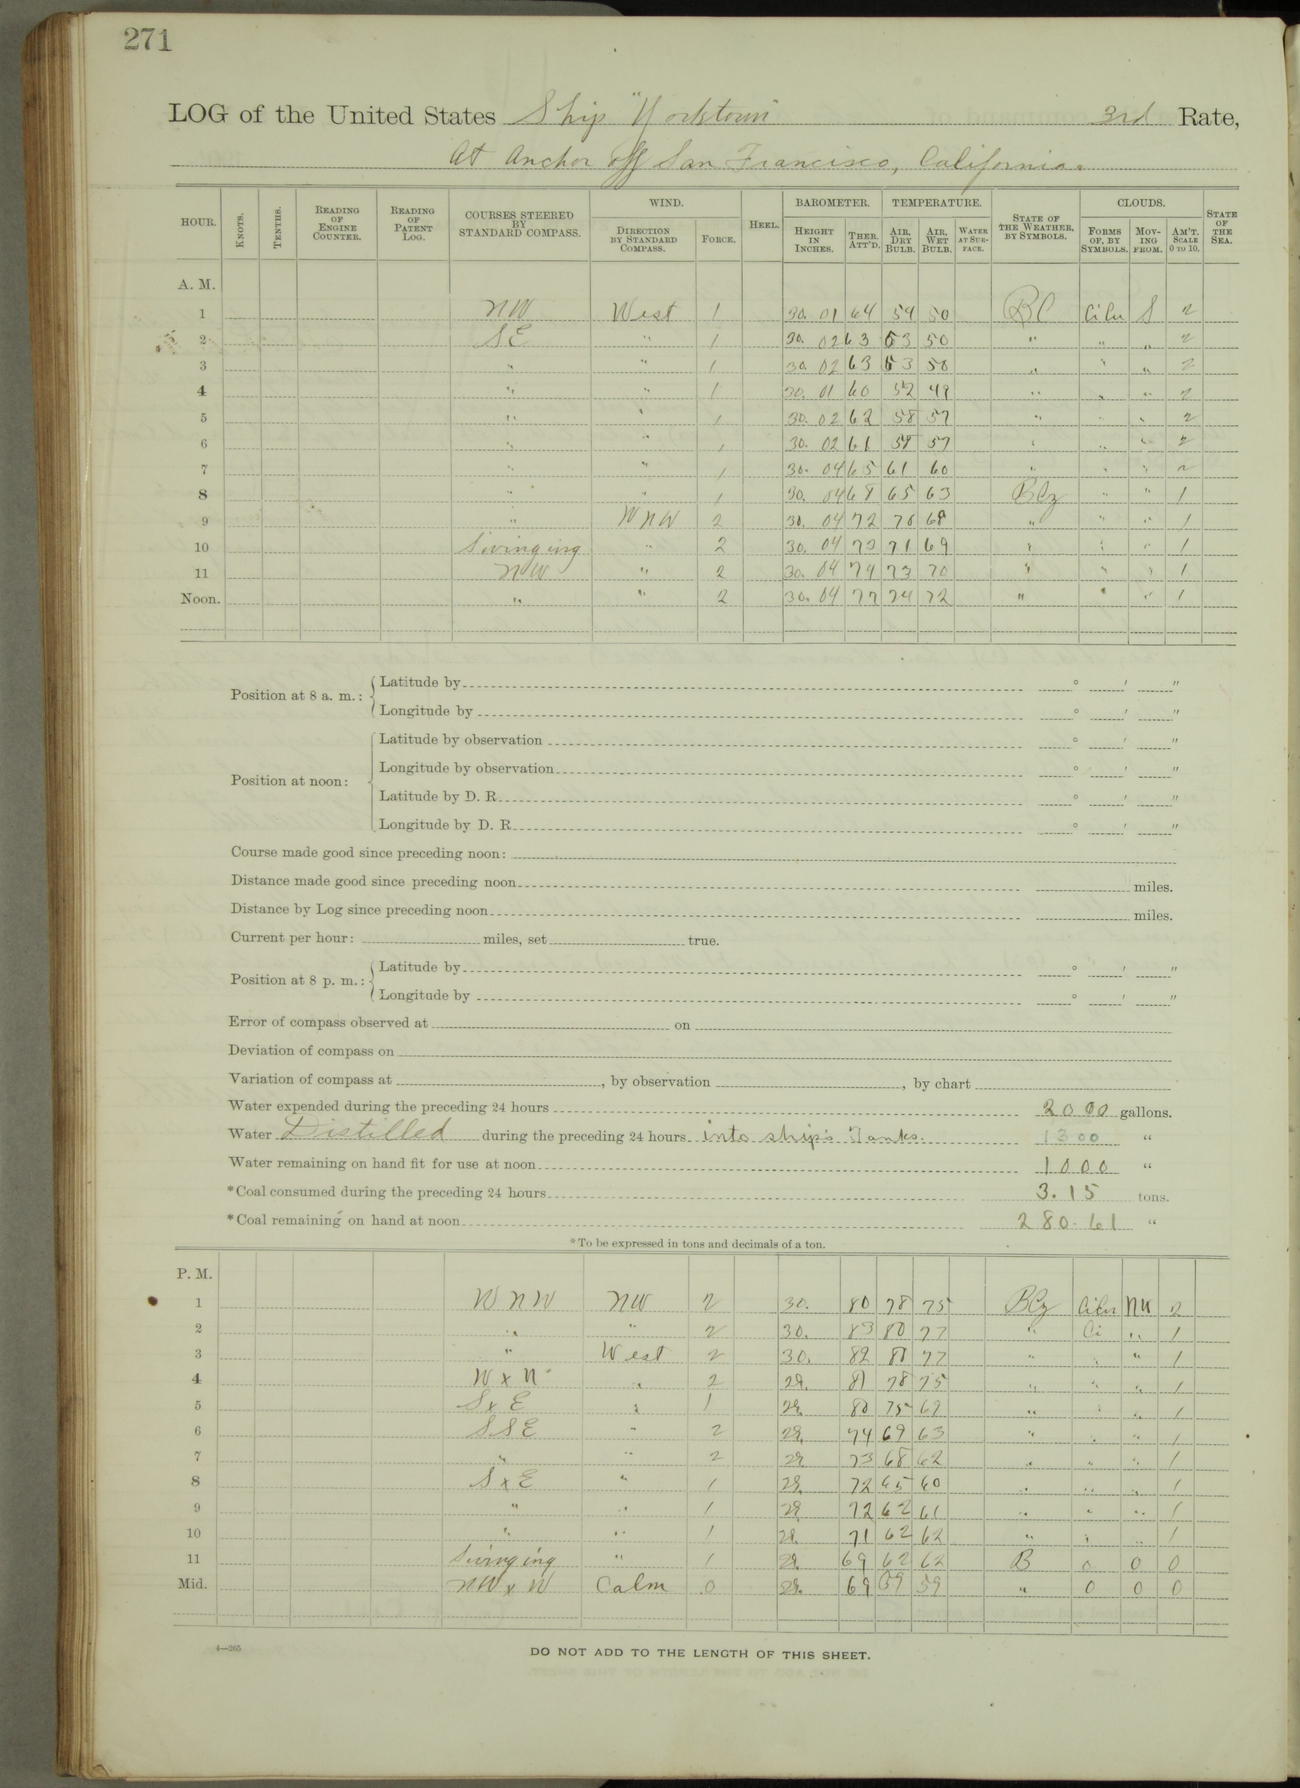 271
LOG of the United States Ship "Yorktown" 3rd Rate,
At Anchor off San Francisco, California.
HOUR. KNOTS. TENTHS. READING OF ENGINE COUNTER. READING OF PATENT LOG. COURSES STEERED BY STANDARD COMPASS. WIND. DIRECTION BY STANDARD COMPASS. FORCE. HEEL. BAROMETER. HEIGHT IN INCHES. THER. ATT'D. TEMPERATURE. AIR, DRY BULB. AIR, WET BULB. WATER AT SURFACE. STATE OF THE WEATHER, BY SYMBOLS. CLOUDS. FORMS OF, BY SYMBOLS. MOVING FROM. AM'T. SCALE 0 TO 10. STATE OF THE SEA.
A. M.
1 NW West 1 30. 01 64 54 50 BC CiCu S 2
2 SE " 1 30. 02 63 53 50 " " " 2
3 " " 1 30. 02 63 53 50 " " " 2
4 " " 1 30. 01 60 52 49 " " " 2
5 " " 1 30. 02 62 58 57 " " " 2
6 " " 1 30. 02 61 58 57 " " " 2
7 " " 1 30. 04 65 61 60 " " " 2
8 " " 1 30. 04 68 65 63 BCz " " 1
9 " WNW 2 30. 04 72 70 68 " " " 1
10 Swinging " 2 30. 04 73 71 69 " " " 1
11 NW " 2 30. 04 74 73 70 " " " 1
Noon. " " 2 30. 04 77 74 72 " " " 1
Position at 8 a. m.: Latitude by ° ' "
Longitude by ° ' "
Position at noon: Latitude by observation ° ' "
Longitude by observation ° ' "
Latitude by D. R. ° ' "
Longitude by D. R. ° ' "
Course made good since preceding noon:
Distance made good since preceding noon miles.
Distance by Log since preceding noon miles.
Current per hour: miles, set true.
Position at 8 p. m.: Latitude by ° ' "
Longitude by ° ' "
Error of compass observed at on
Deviation of compass on
Variation of compass at , by observation , by chart
Water expended during the preceding 24 hours 2000 gallons.
Water Distilled during the preceding 24 hours into ship's Tanks. 1300 "
Water remaining on hand fit for use at noon 1000 "
*Coal consumed during the preceding 24 hours 3.15 tons.
*Coal remaining on hand at noon 280.61 "
*To be expressed in tons and decimals of a ton.
P. M.
1 WNW NW 2 30. 80 78 75 BCz CiCu NW 2
2 " " 2 30. 83 80 77 " Ci " 1
3 " West 2 30. 82 80 77 " " " 1
4 WxN " 2 29. 81 78 75 " " " 1
5 SxE " 1 29. 80 75 62 " " " 1
6 SSE " 2 29. 74 69 63 " " " 1
7 " " 2 29 73 68 62 " " " 1
8 SxE " 1 29. 72 65 60 " " " 1
9 " " 1 29. 72 62 61 " " " 1
10 " " 1 29. 71 62 62 " " " 1
11 Swinging " 1 29. 69 62 62 B 0 0 0
Mid. NWxW Calm 0 29. 69 59 59 " 0 0 0
4—265
DO NOT ADD TO THE LENGTH OF THIS SHEET.